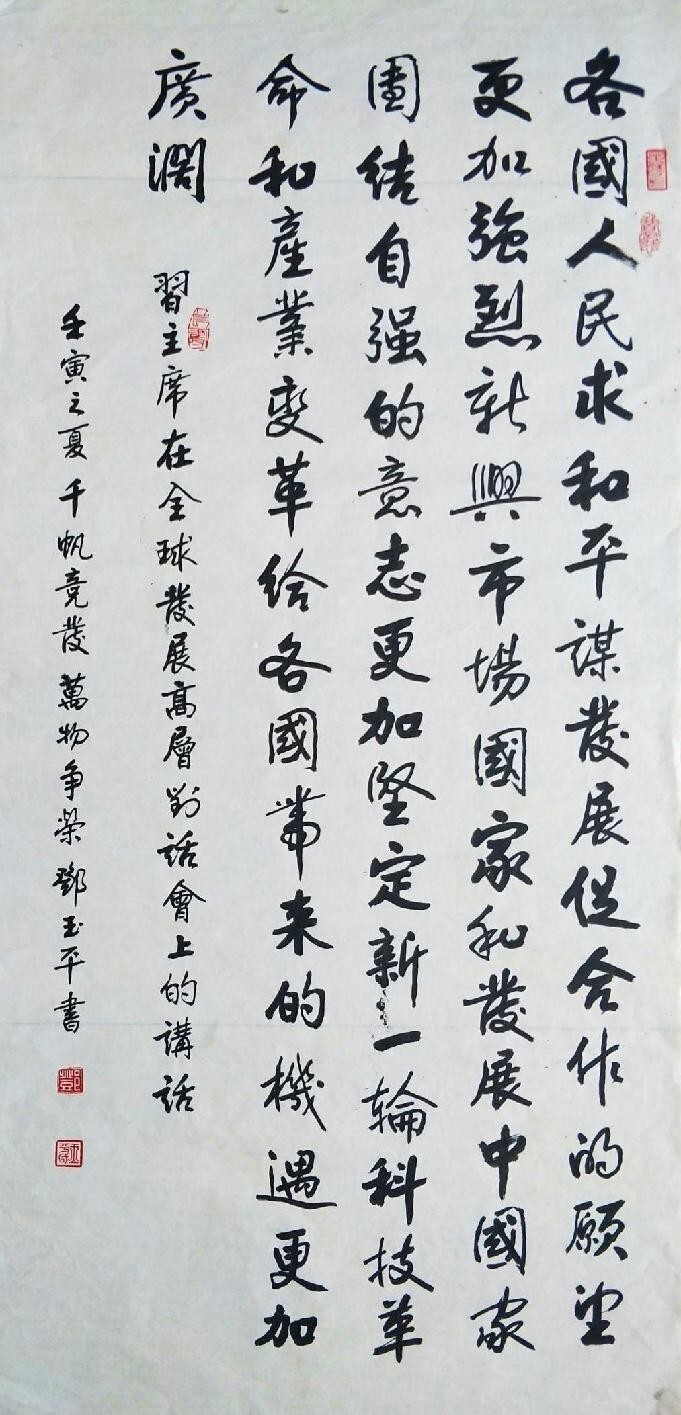 各國人民求和平謀發展促合作的願望
更加強烈新興市場國家和發展中國家
團结自强的意志更加堅定新一輪科技革
命和產業变革给各國帶来的機遇更加
廣濶
習主席在全球發展高層對話會上的講話
壬寅之夏千帆竞發萬物争榮鄧玉平書